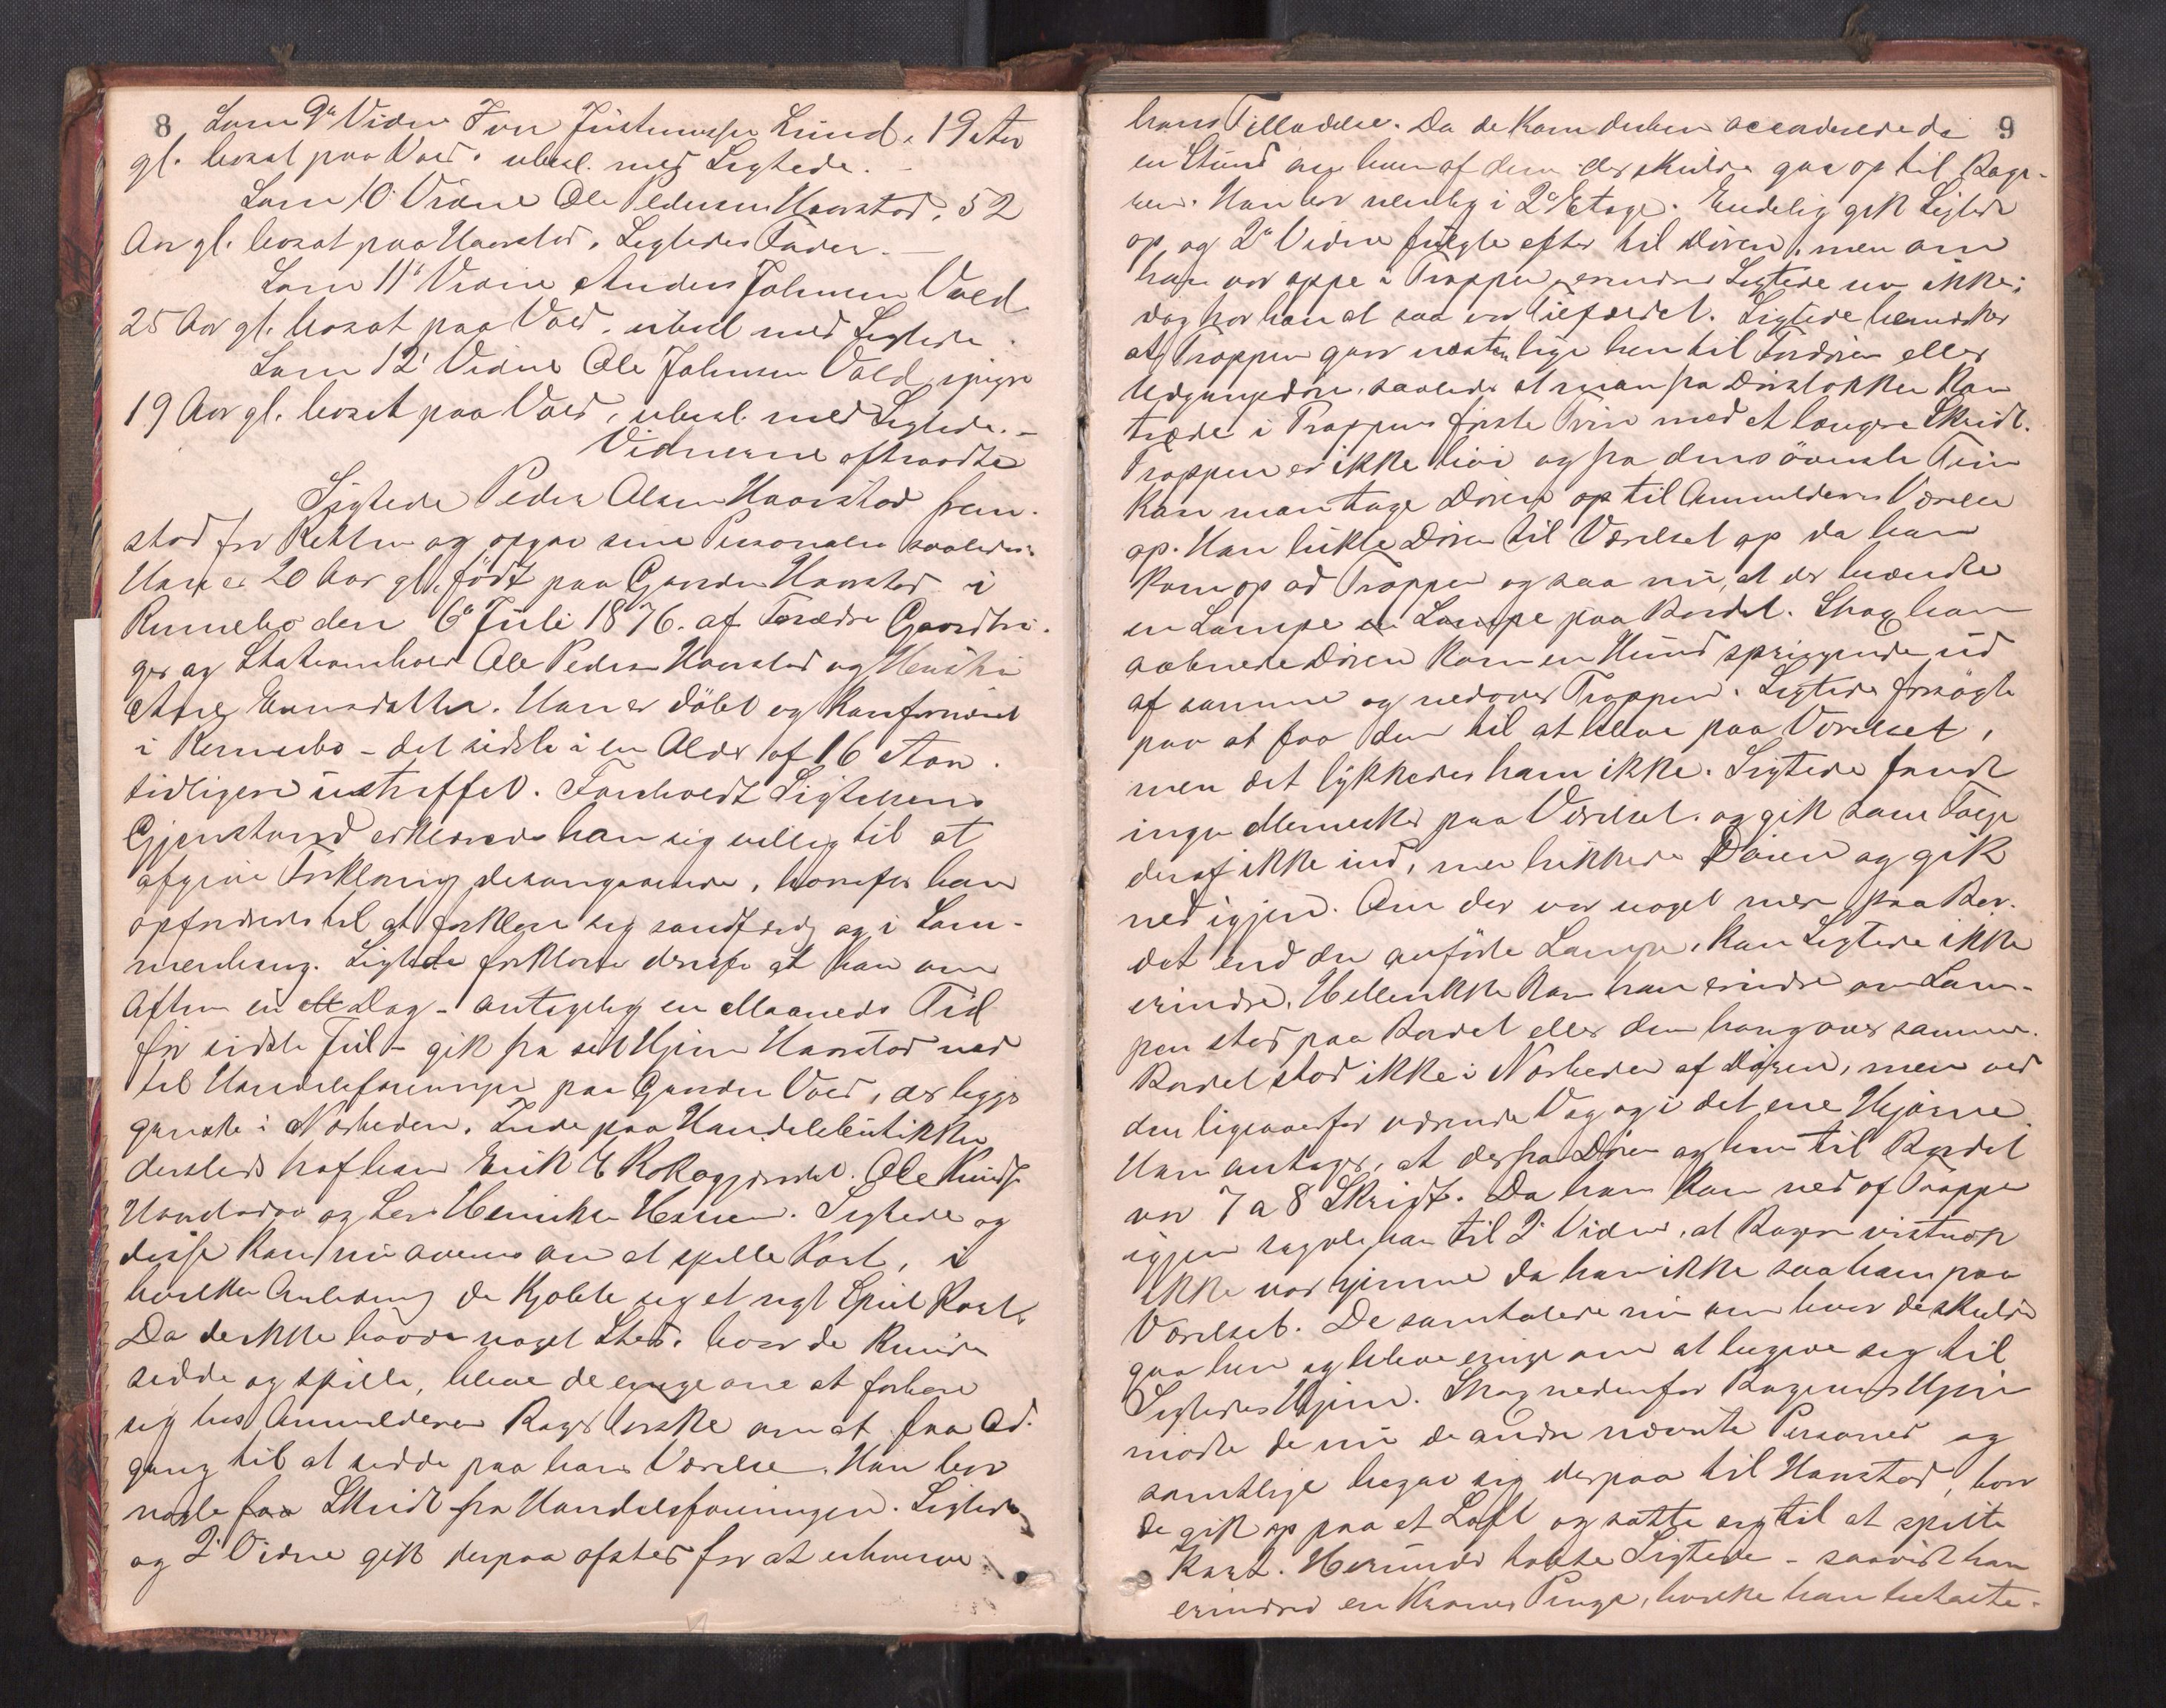 8
Som 9de Vidne Iver Justnussen Lund, 19 Aar
gl. bosat paa Vold. ubesl. med Sigtede. -
Som 10' Vidne Ole Pedersen Haarstad, 52
Aar gl. bosat paa Haarstad, Sigtedes Fader. -
Som 11' Vidne Anders Johnsen Vold
25 Aar gl. bosat paa Vold, ubesl med Sigtede.
Som 12' Vidne Ole Johnsen Vold yngre
19 Aar gl. bosat paa Vold, ubesl. med Sigtede. -
Vidnerne aftraadte
Sigtede Peder Olsen Haarstad frem-
stod for Retten og opgav sine Personalia saaledes:
Han er 20 Aar gl. født paa Gaarden Haarstad i
Rennebo den 6te Juli 1876. af Forældre Gaardbru-
ger og Stationsholder Ole Pedersen Haarstad og Hustru
Ane Ensdatter. Han er døbt og Konfirmeret
i Rennebo - det sidste i en Alder af 16 Aar.
tidligere ustraffet. Foreholdt Sigtelsens
Gjenstand erklærede han sig villig til at
afgive Forklaring desangaaende, hvorefter han
opfordredes til at forklare sig sandfærdig og i Sam-
menhæng. Sigtede forklarer derefter at han om
Aften en Dag - antagelig en Maaneds Tid
før sidste Jul - gik fra sit Hjem Haarstad ned
til Handelsforeningen paa Gaarden Vold, der ligger
ganske i Nærheden. Inde paa Handelsbutikken
dersteds traf han Erik E Kokaggjerdet. Ole Knuds
og Lars Henriksen Hansen. Sigtede og
disse kom nu overens om at spille Kort, i
hvilken Anledning de kjøbte sig et nyt Spil Kort.
Da de ikke havde noget Sted, hvor de kunde
sidde og spille, bleve de enige om at forhøre
sig hos Anmelderen Bager om at faa Ad-
gang til at sidde paa hans Værelse. Han bor
nogle faa Skridt fra Handelsforeningen. Sigtede
og 2' Vidne gik derpaa afsted for at erhverve
9
hans Tilladelse. Da de kom derhen accorderede de
en Stund om hvem af dem der skulde gaa op til Bage-
ren. Han bor nemlig i 2den Etage. Endelig gik Sigtede
op, og 2' Vidne fulgte efter til Døren, men om
han var oppe i Trappen, erindrer Sigtede nu ikke;
dog tror han at saa var Tilfældet. Sigtede bemærker
at Trappen gaar næsten lige hen til Indre eller
Udgangsdøren, saaledes at man fra Dørstokken kan
træde i Trappens første Trin med et længere Skridt.
Trappen er ikke høi og fra dens øverste Trin
kan man tage Døren op til Anmelderens Værelse
op. Han lukte Døren til Værelset op da han
kom op ad Trappen og saa nu, at der brændte
en Lampe en Lampe paa Bordet. Strax han
aabnede Døren kom en Hund springende ud
af samme og nedover Trappen. Sigtede forsøgte
paa at faa den til at blive paa Værelset,
men det lykkedes ham ikke. Sigtede fandt
ingen Mennesker paa Værelset og gik som Følge
deraf ikke ind, men lukkede Døren og gik
ned igjen. Om der var noget mer paa Bor-
det end den anførte Lampe, kan Sigtede ikke
erindre. Heller ikke kan han erindre om Lam-
pen stod paa Bordet eller den hang over samme.
Bordet stod ikke i Nærheden af Døren, men ved
den ligeoverfor værende Væg og i det ene Hjørne.
Han antager, at der fra Døren og hen til Bordet
var 7 a 8 Skridt. Da han kom ned af Trappen
igjen sagde han til 2' Vidne, at Bageren vistnok
ikke var hjemme da han ikke saa ham paa
Værelset. De samtalede nu om hvor de skulde
gaa hen og bleve enige om at begive sig til
Sigtedes Hjem. Strax nedenfor Bagerens Hjem
mødte de nu de andre nævnte Personer og
samtlige begav sig derpaa til Haarstad, hvor
de gik op paa et Loft og satte sig til at spille
Kort. Herunder tabte Sigtede - saavidt han
erindrer en Krones Penge, hvilke han betalte.